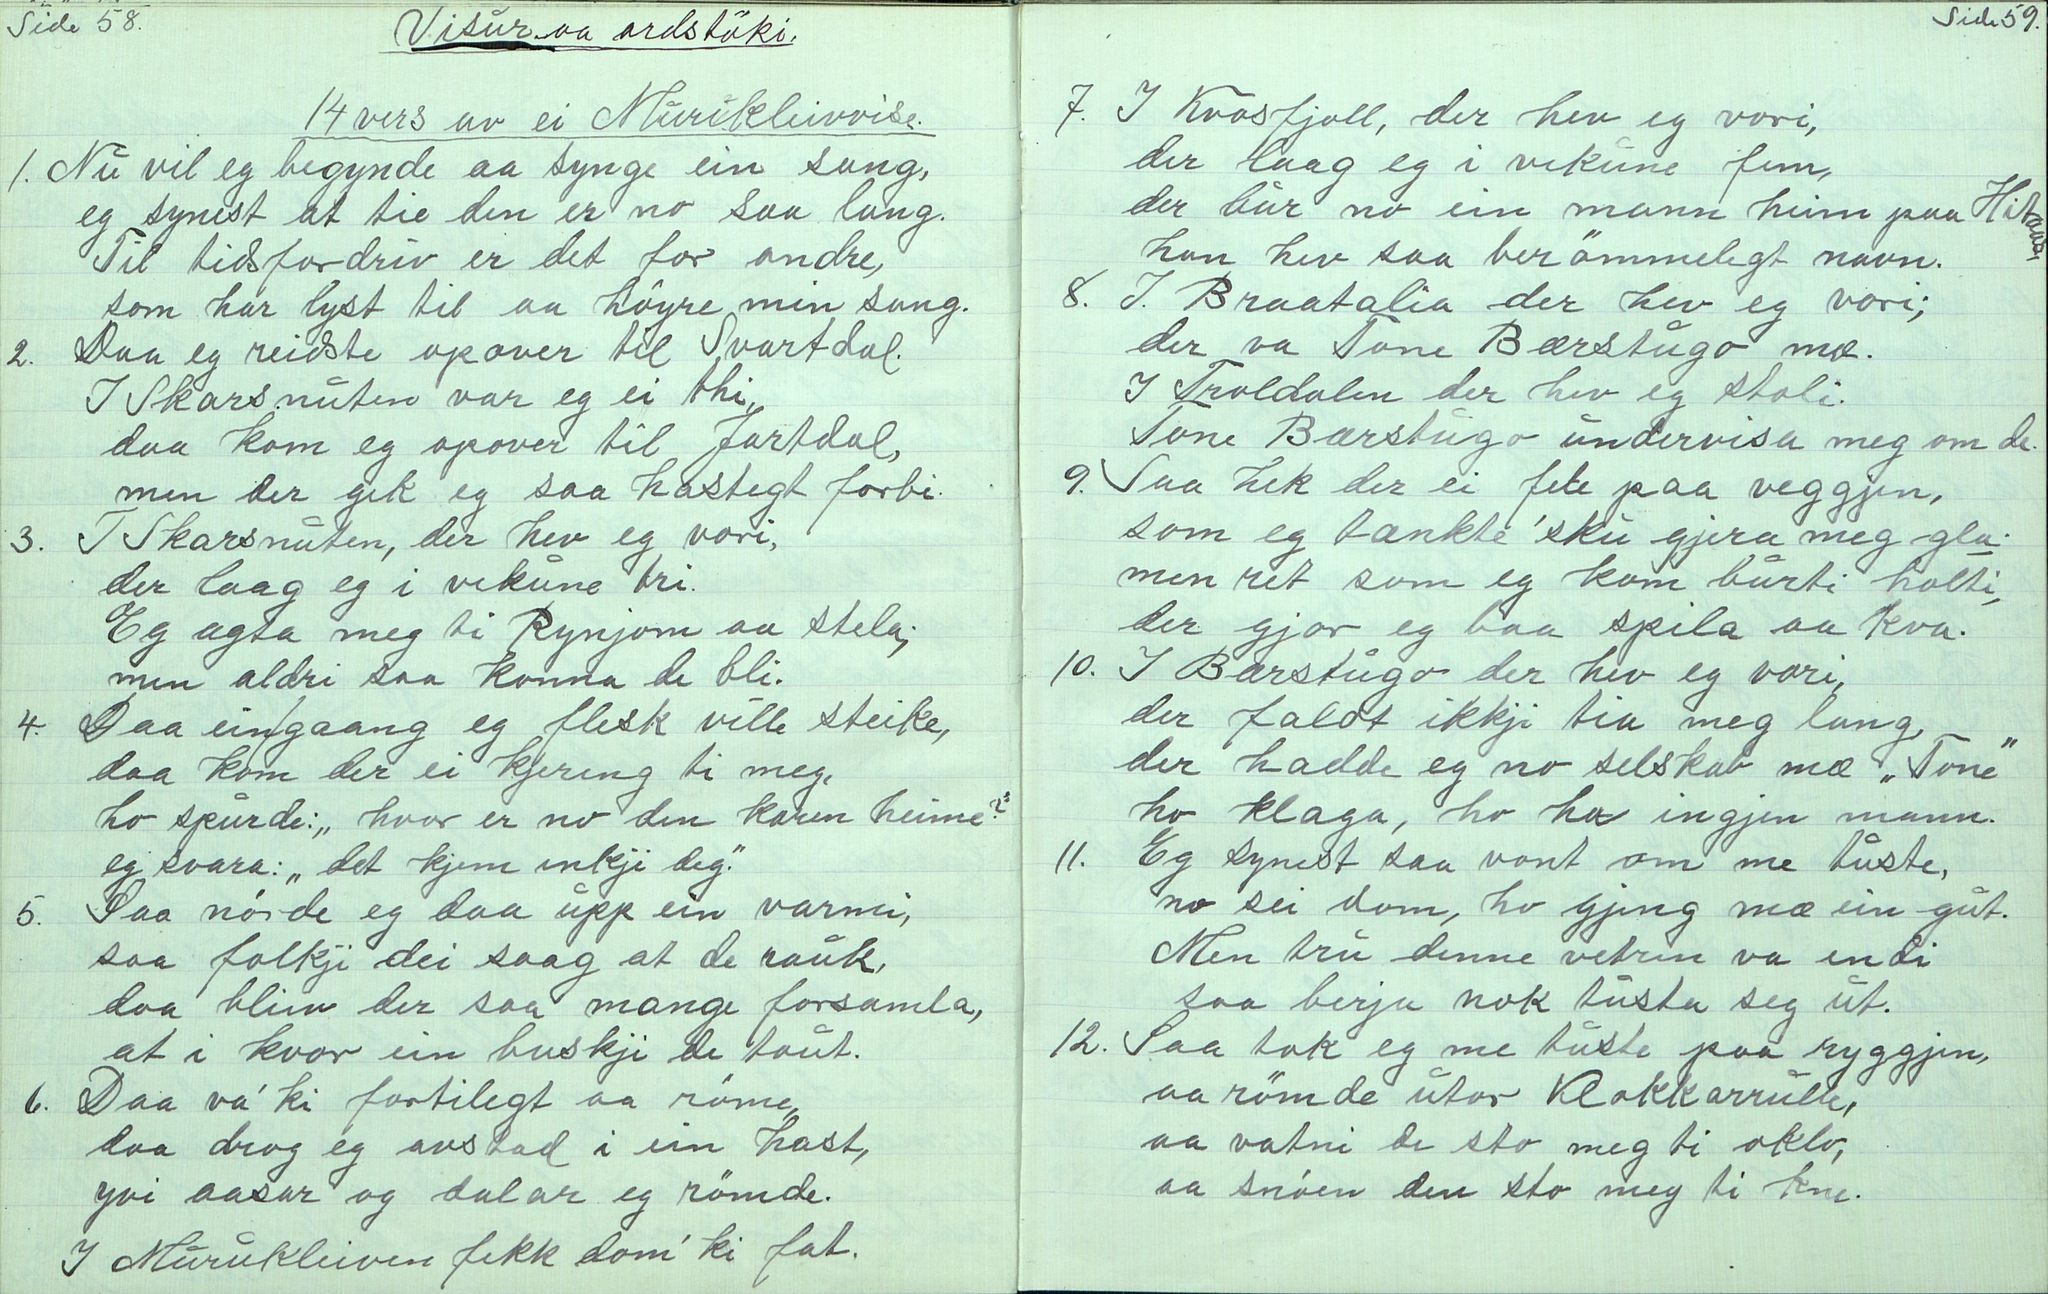 Side 58.
Visur aa ordstöki.
14 vers av ei Murukleivvise.
1. Nu vil eg begynde aa synge ein sang,
eg synest at tie den er no saa lang.
Til tidsfordriv er det for andre,
som har lyst til aa höyre min sang.
2. Daa eg reidste opover til Svartdal.
I Skarsnuten var eg ei thi,
daa kom eg opover til Jartdal,
men der gik eg saa hastegt forbi.
3. I Skarsnuten, der hev eg vori,
der laag eg i vekune tri.
Eg agta meg ti Rynjom aa stela;
men aldri saa konna de bli.
4. Daa eingaang eg flesk ville steike,
daa kom der ei kjering ti meg,
ho spurde: „hvor er no den karen heime?"
eg svara: „det kjem inkji deg."
5. Saa nörde eg daa upp ein varmi,
saa folkji dei saag at de rauk,
daa bleiv der saa mange forsamla,
at i kvor ein buskji de taut.
6. Daa va' ki fortilegt aa röme,
daa drog eg avstad i ein hast,
yvi aasar og dalar eg römde.
I Murukleiven fekk dom' ki fat.
Side 59.
7. I Kvosfjoll, der hev eg vori,
der laag eg i vekune fem,
der bur no ein mann heim paa Hitaas
han hev saa berömmelegt navn.
8. I Braatalia der hev eg vori;
der va Tone Bærstugo mæ.
I Troldalen der hev eg stoli.
Tone Bærstugo undervisa meg om de.
9. Saa hek der ei fele paa veggjen,
som eg tænkte 'sku gjera meg gla.
men ret som eg kom burti holti,
der gjor eg baa spila aa kva.
10. I Bærstugo der hev eg vori,
der faldt ikkji tia meg lang,
der hadde eg no selskab mæ „Tone"
ho klaga, ho ha ingjen mann.
11. Eg synest saa vont om me tuste,
no sei dom, ho gjeng mæ ein gut.
Men tru denne vetren va endi
saa berju nok tusta seg ut.
12. Saa tok eg me tuste paa ryggjen,
aa römde utor Klokkarrulle,
aa vatni de sto meg ti oklo,
aa snöen den sto meg ti kne.